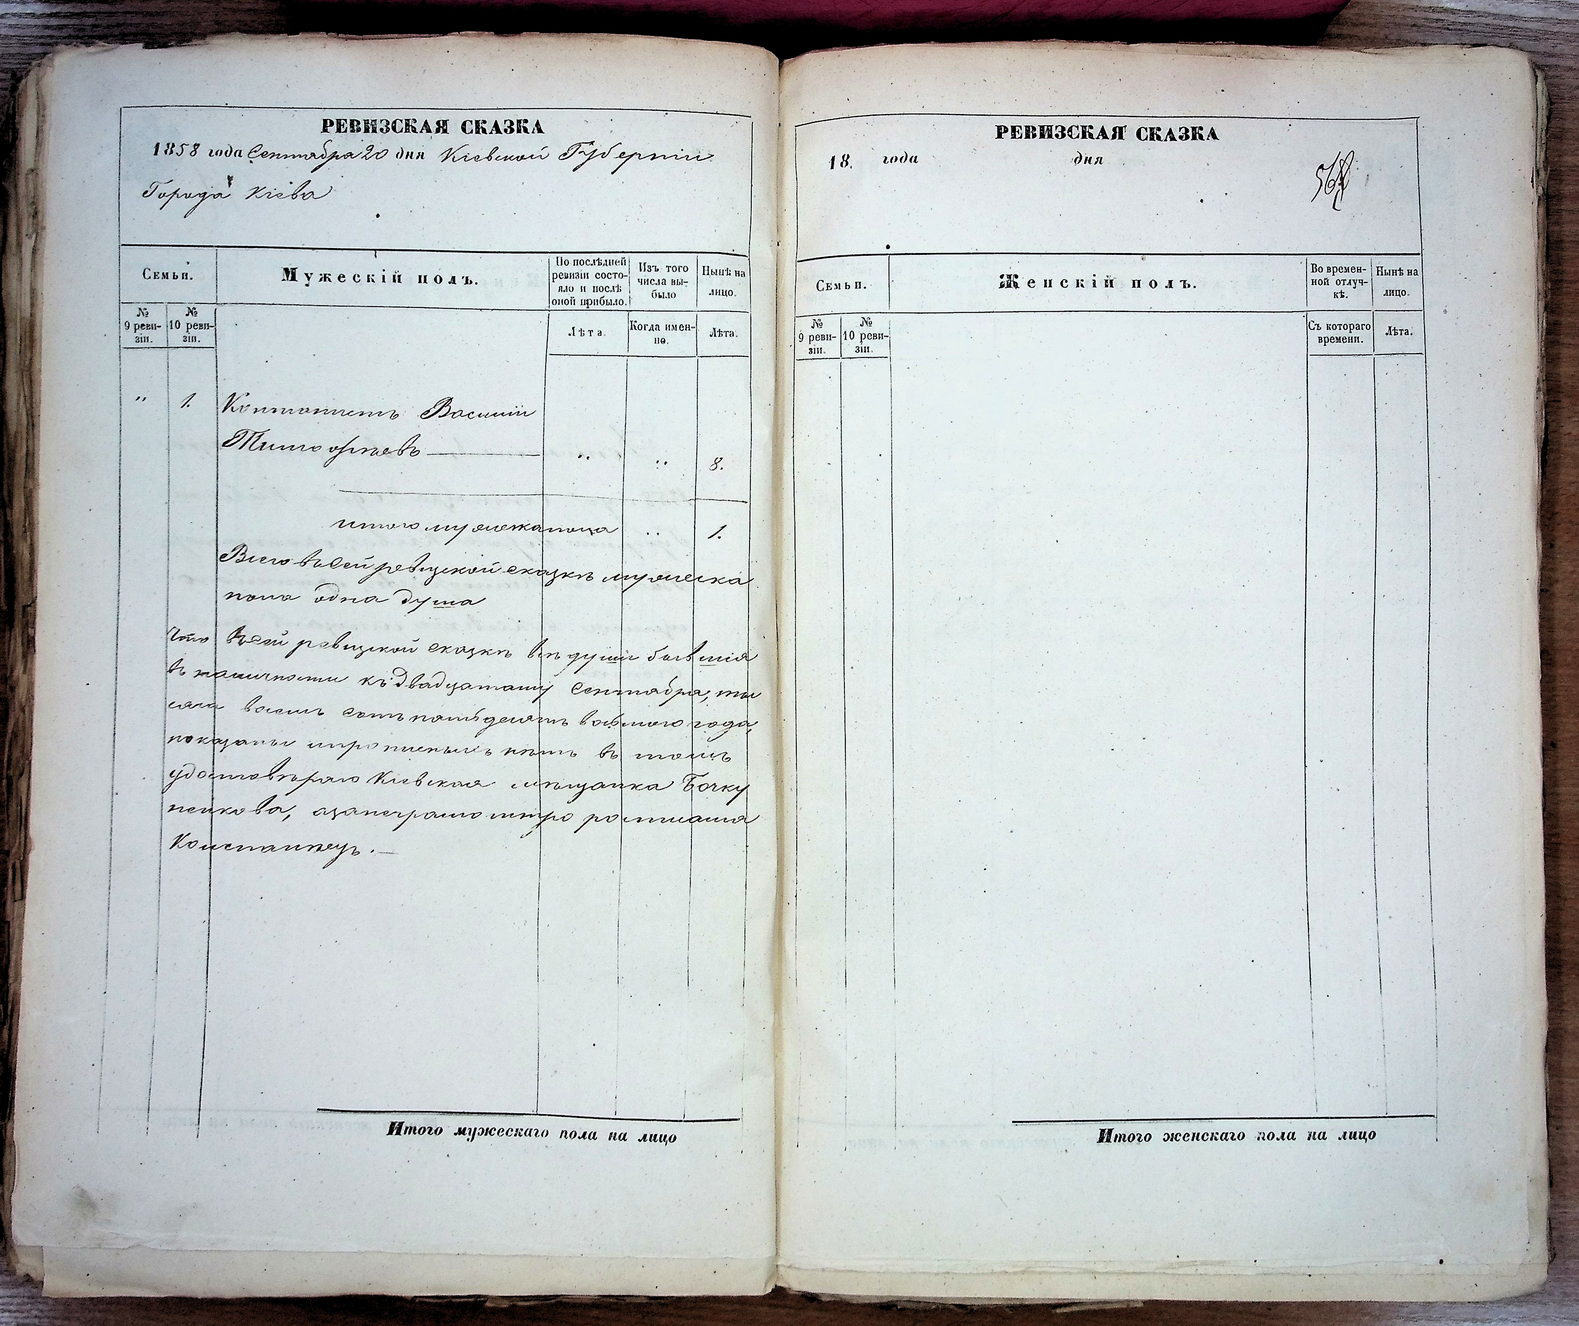 РЕВИЗСКАЯ СКАЗКА
1858 года Сентября 20 дня Кіевской Губерніи
Города Кіева
Семьи.
Мужескій полъ.
По послѣдней ревизіи состо-
яло и послѣ
оной прибыло.
Изъ того
числа вы-
было
Нынѣ на
лицо.
№
9 реви-
зіи.
№
10 реви-
зіи.
Лѣта.
Когда имен-
но.
Лѣта.
" 1. Василій
Тимофѣевъ " " 8.
итого мужеска пола " 1.
Всего въ сей ревизской сказкѣ мужеска
пола одна душа
Что въ сей ревизской сказкѣ всѣ души бывшія
въ наличности къ двадцатому Сентября, ты
сяча восемь сотъ пятьдесятъ восьмого года,
показаны и прописныхъ нѣтъ въ томъ
удостовѣряю Кіевская мѣщанка Бочку
пенкова,
РЕВИЗСКАЯ СКАЗКА
18 . года дня
Семьи.
Женскій полъ.
Во времен-
ной отлуч-
кѣ.
Нынѣ на
лицо.
№
9 реви-
зіи.
№
10 реви-
зіи.
Съ котораго
времени.
Лѣта.
Итого мужескаго пола на лицо
Итого женскаго пола на лицо